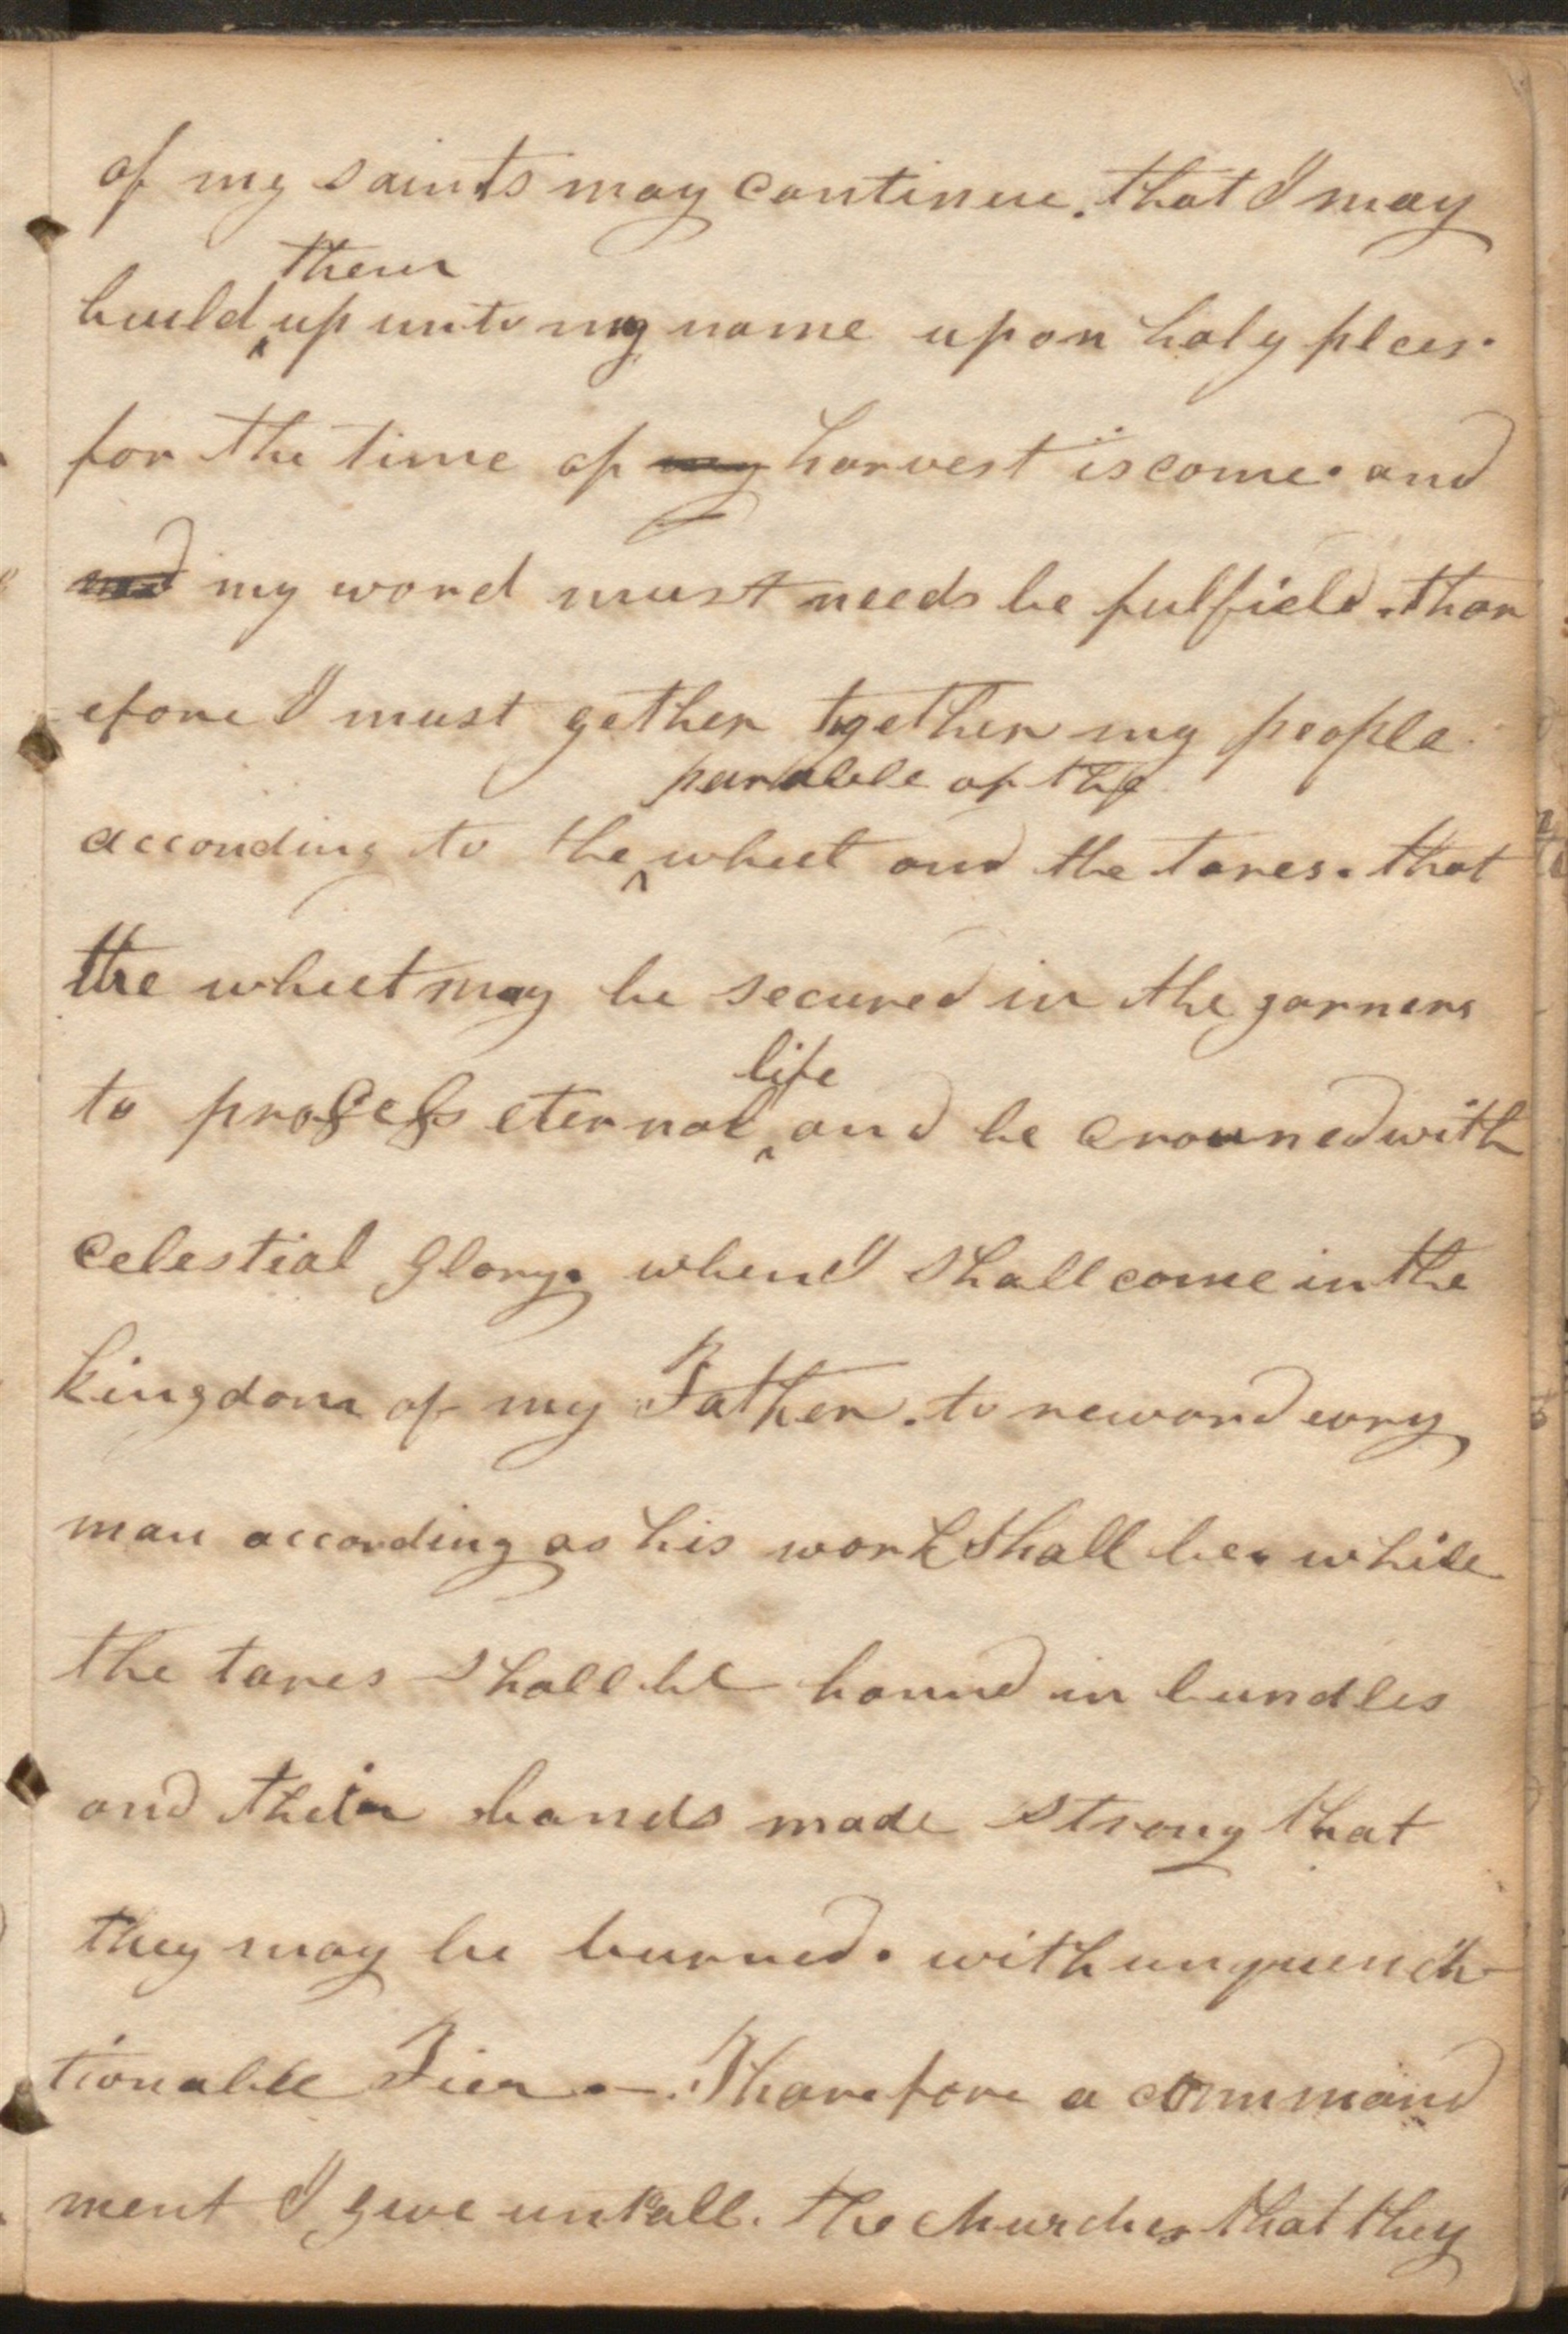 of my saints may continue. that I may
them
build up unto my name upon holy plces.
for the time of my harvest is come. and
and my word must needs be fulfield. thar
efore I must gether together my people
parable of the
according to the wheet and the tares. that
the wheet may be secured in the garners
life
to prosess eternal and be crowned with
celestial glory. when I shall come in the
kingdom of my Father. to reward evry
man according as his work shall be. while
the tares shall be bound in bundles
and their bands made strong that
they may be burned. with unquench
tionable Fier. — Tharefore a command
ment I give unto all. the churches that they